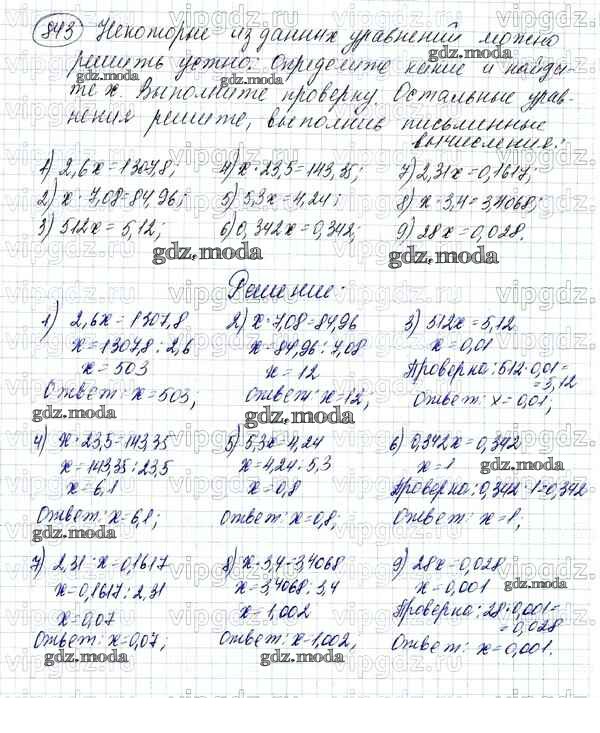 843 Некоторые из данных уравнений можно
решить устно. Определите какие и найди-
те x. Выполните проверку. Остальные урав-
нения решите, выполнив письменные
вычисления:
1) 2,6x=1307,8; 4) x·23,5=143,35; 7) 2,31x=0,1617;
2) x·7,08=84,96; 5) 5,3x=4,24; 8) x·3,4=3,4068;
3) 512x=5,12; 6) 0,342x=0,342; 9) 28x=0,028.
gdz.moda
Решение:
1) 2,6x=1307,8 2) x·7,08=84,96 3) 512x=5,12
x=1307,8:2,6 x=84,96:7,08 x=0,01
x=503 x=12 Проверка: 512·0,01=
=5,12
Ответ: x=503; Ответ: x=12; Ответ: x=0,01;
gdz.moda gdz.moda
4) x·23,5=143,35 5) 5,3x=4,24 6) 0,342x=0,342
x=143,35:23,5 x=4,24:5,3 x=1
x=6,1 x=0,8 Проверка: 0,342·1=0,342
Ответ: x=6,1; Ответ: x=0,8; Ответ: x=1;
gdz.moda
7) 2,31·x=0,1617 8) x·3,4=3,4068 9) 28x=0,028
x=0,1617:2,31 x=3,4068:3,4 x=0,001
x=0,07 x=1,002 Проверка: 28·0,001=
=0,028
Ответ: x=0,07; Ответ: x=1,002; Ответ: x=0,001.
gdz.moda gdz.moda